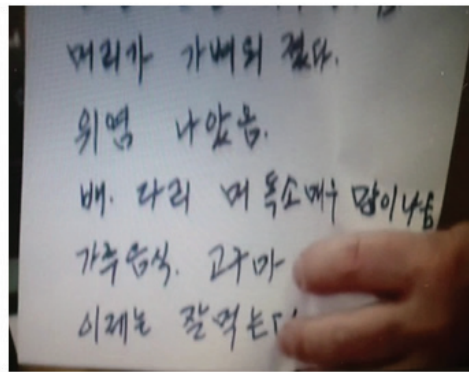 머리가 가벼워 졌다.
위염 나았음.
배. 다리 머 독소매우 많이나옴
가루음식. 고구마
이제는 잘먹는다